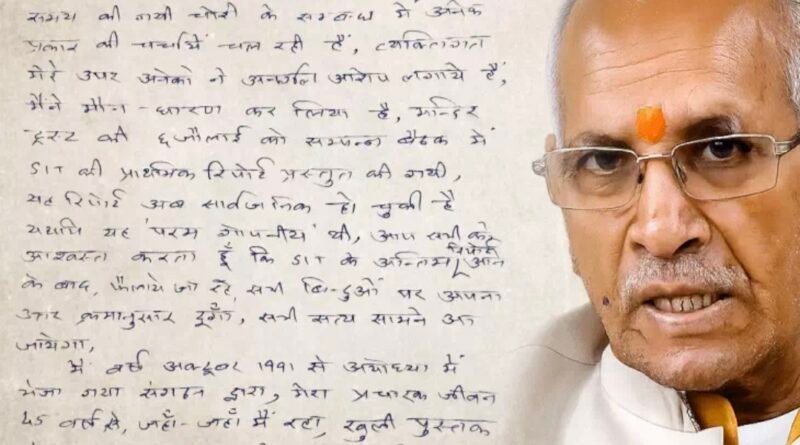 समय की गयी चोरी के सम्बन्ध में अनेक
प्रकार की चर्चायें चल रही हैं, व्यक्तिगत
मेरे उपर अनेकों ने अनर्गल आरोप लगाये हैं,
मैंने मौन - धारण कर लिया है, मन्दिर
ट्रस्ट की ६ जौलाई को सम्पन्न बैठक में
SIT की प्राथमिक रिपोर्ट प्रस्तुत की गयी,
यह रिपोर्ट अब सार्वजनिक हो चुकी है
यद्यपि यह 'परम गोपनीय' थी, आप सभी को
आश्वस्त करता हूँ कि SIT के अन्तिम रिपोर्ट आने
के बाद, फैलाये जा रहे, सभी बिन्दुओं पर अपना
उत्तर क्रमानुसार दूगाँ, सभी सत्य सामने आ
जायेगा,
मैं वर्ष अक्टूबर 1991 से अयोध्या में
भेजा गया संगठन द्वारा, मेरा प्रचारक जीवन
45 वर्ष से, जहाँ - जहाँ मैं रहा, खुली पुस्तक